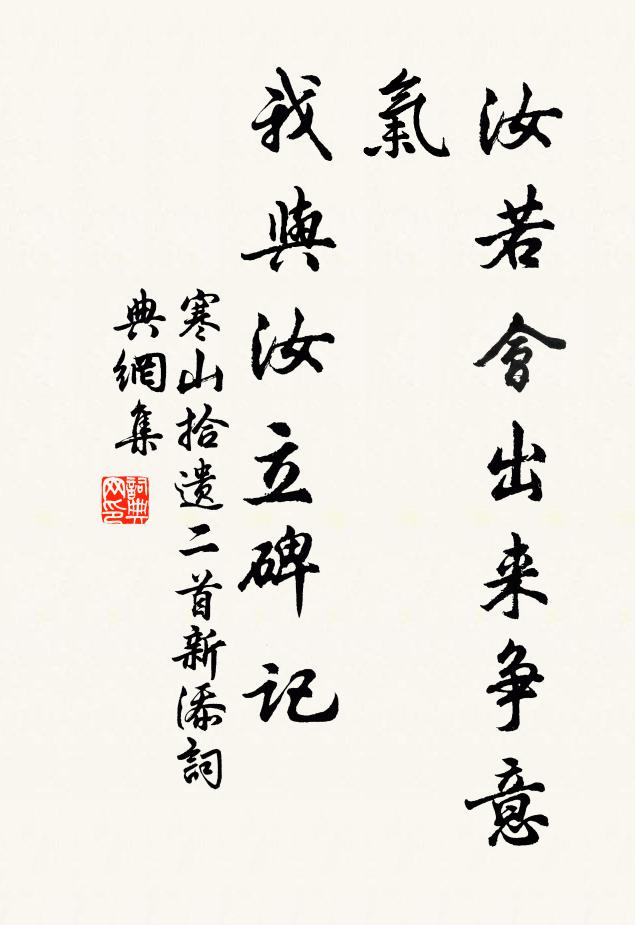 汝若會出来争意
氣
我與汝立碑記
寒山拾遺二首新添詞
典網集
詞典
网印